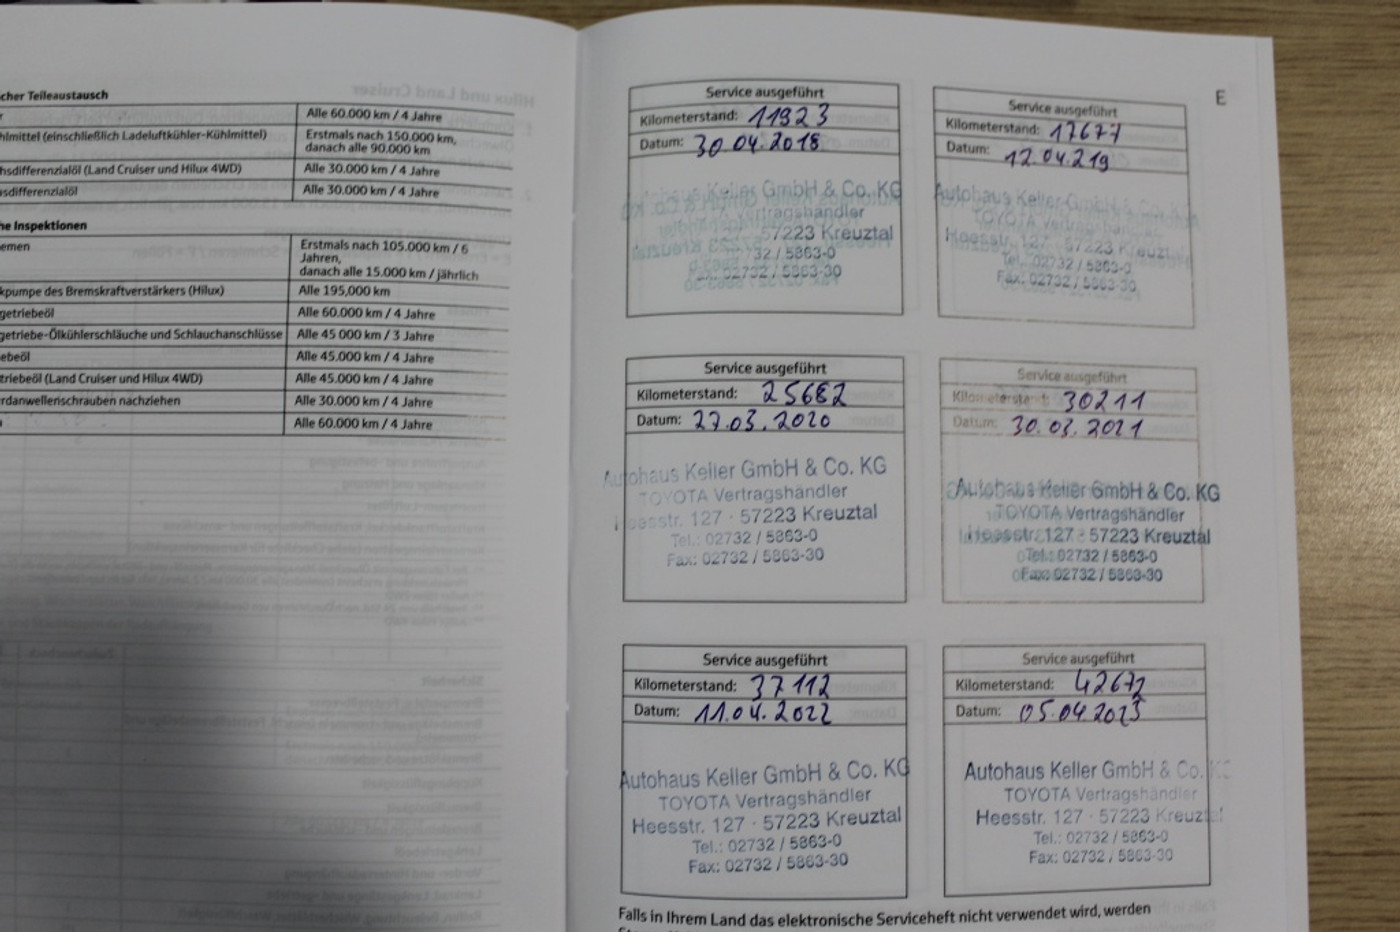 cher Teileaustausch
Alle 60.000 km / 4 Jahre
hlmittel (einschließlich Ladeluftkühler-Kühlmittel) Erstmals nach 150.000 km,
danach alle 90.000 km
hsdifferenzialöl (Land Cruiser und Hilux 4WD) Alle 30.000 km / 4 Jahre
sdifferenzialöl Alle 30.000 km / 4 Jahre
he Inspektionen
emen Erstmals nach 105.000 km / 6
Jahren,
danach alle 15.000 km / jährlich
kpumpe des Bremskraftverstärkers (Hilux) Alle 195,000 km
getriebeöl Alle 60.000 km / 4 Jahre
getriebe-Ölkühlerschläuche und Schlauchanschlüsse Alle 45 000 km / 3 Jahre
ebeöl Alle 45.000 km / 4 Jahre
triebeöl (Land Cruiser und Hilux 4WD) Alle 45.000 km / 4 Jahre
rdanwellenschrauben nachziehen Alle 30.000 km / 4 Jahre
Alle 60.000 km / 4 Jahre
E
Service ausgeführt
Kilometerstand: 11923
Datum: 30.04.2018
Autohaus Keller GmbH & Co. KG
TOYOTA Vertragshändler
57223 Kreuztal
02732 / 5863-0
Fax: 02732 / 5863-30
Service ausgeführt
Kilometerstand: 17677
Datum: 12.04.219
Autohaus Keller GmbH & Co. KG
TOYOTA
Heesstr. 127 · 57223 Kreuztal
Tel.: 02732 / 5863-0
Fax: 02732 / 5863-30
Service ausgeführt
Kilometerstand: 25682
Datum: 27.03.2020
Autohaus Keller GmbH & Co. KG
TOYOTA Vertragshändler
Heesstr. 127 · 57223 Kreuztal
Tel.: 02732 / 5863-0
Fax: 02732 / 5863-30
Service ausgeführt
Kilometerstand: 30211
Datum: 30.03.2021
Autohaus Keller GmbH & Co. KG
TOYOTA Vertragshändler
Heesstr. 127 · 57223 Kreuztal
Tel.: 02732 / 5863-0
Fax: 02732 / 5863-30
Service ausgeführt
Kilometerstand: 37112
Datum: 11.04.2022
Autohaus Keller GmbH & Co. KG
TOYOTA Vertragshändler
Heesstr. 127 · 57223 Kreuztal
Tel.: 02732 / 5863-0
Fax: 02732 / 5863-30
Service ausgeführt
Kilometerstand: 42672
Datum: 05.04.2023
Autohaus Keller GmbH & Co. KG
TOYOTA Vertragshändler
Heesstr. 127 · 57223 Kreuztal
Tel.: 02732 / 5863-0
Fax: 02732 / 5863-30
Falls in Ihrem Land das elektronische Serviceheft nicht verwendet wird, werden